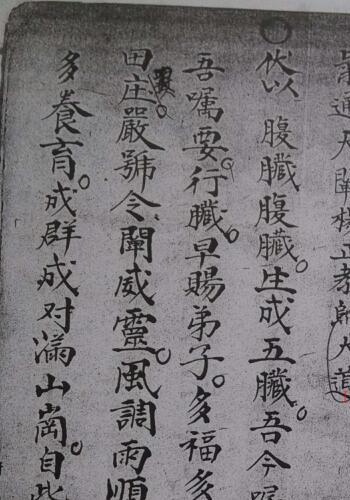 通天闡楊正孝
○伏以腹臟腹臟。庄成五臟。吾今
吾囑要。行臟。早賜弟子。多福多
田庄。嚴號令闡威靈。風調雨順
多養育。成群成对滿山崗。自此